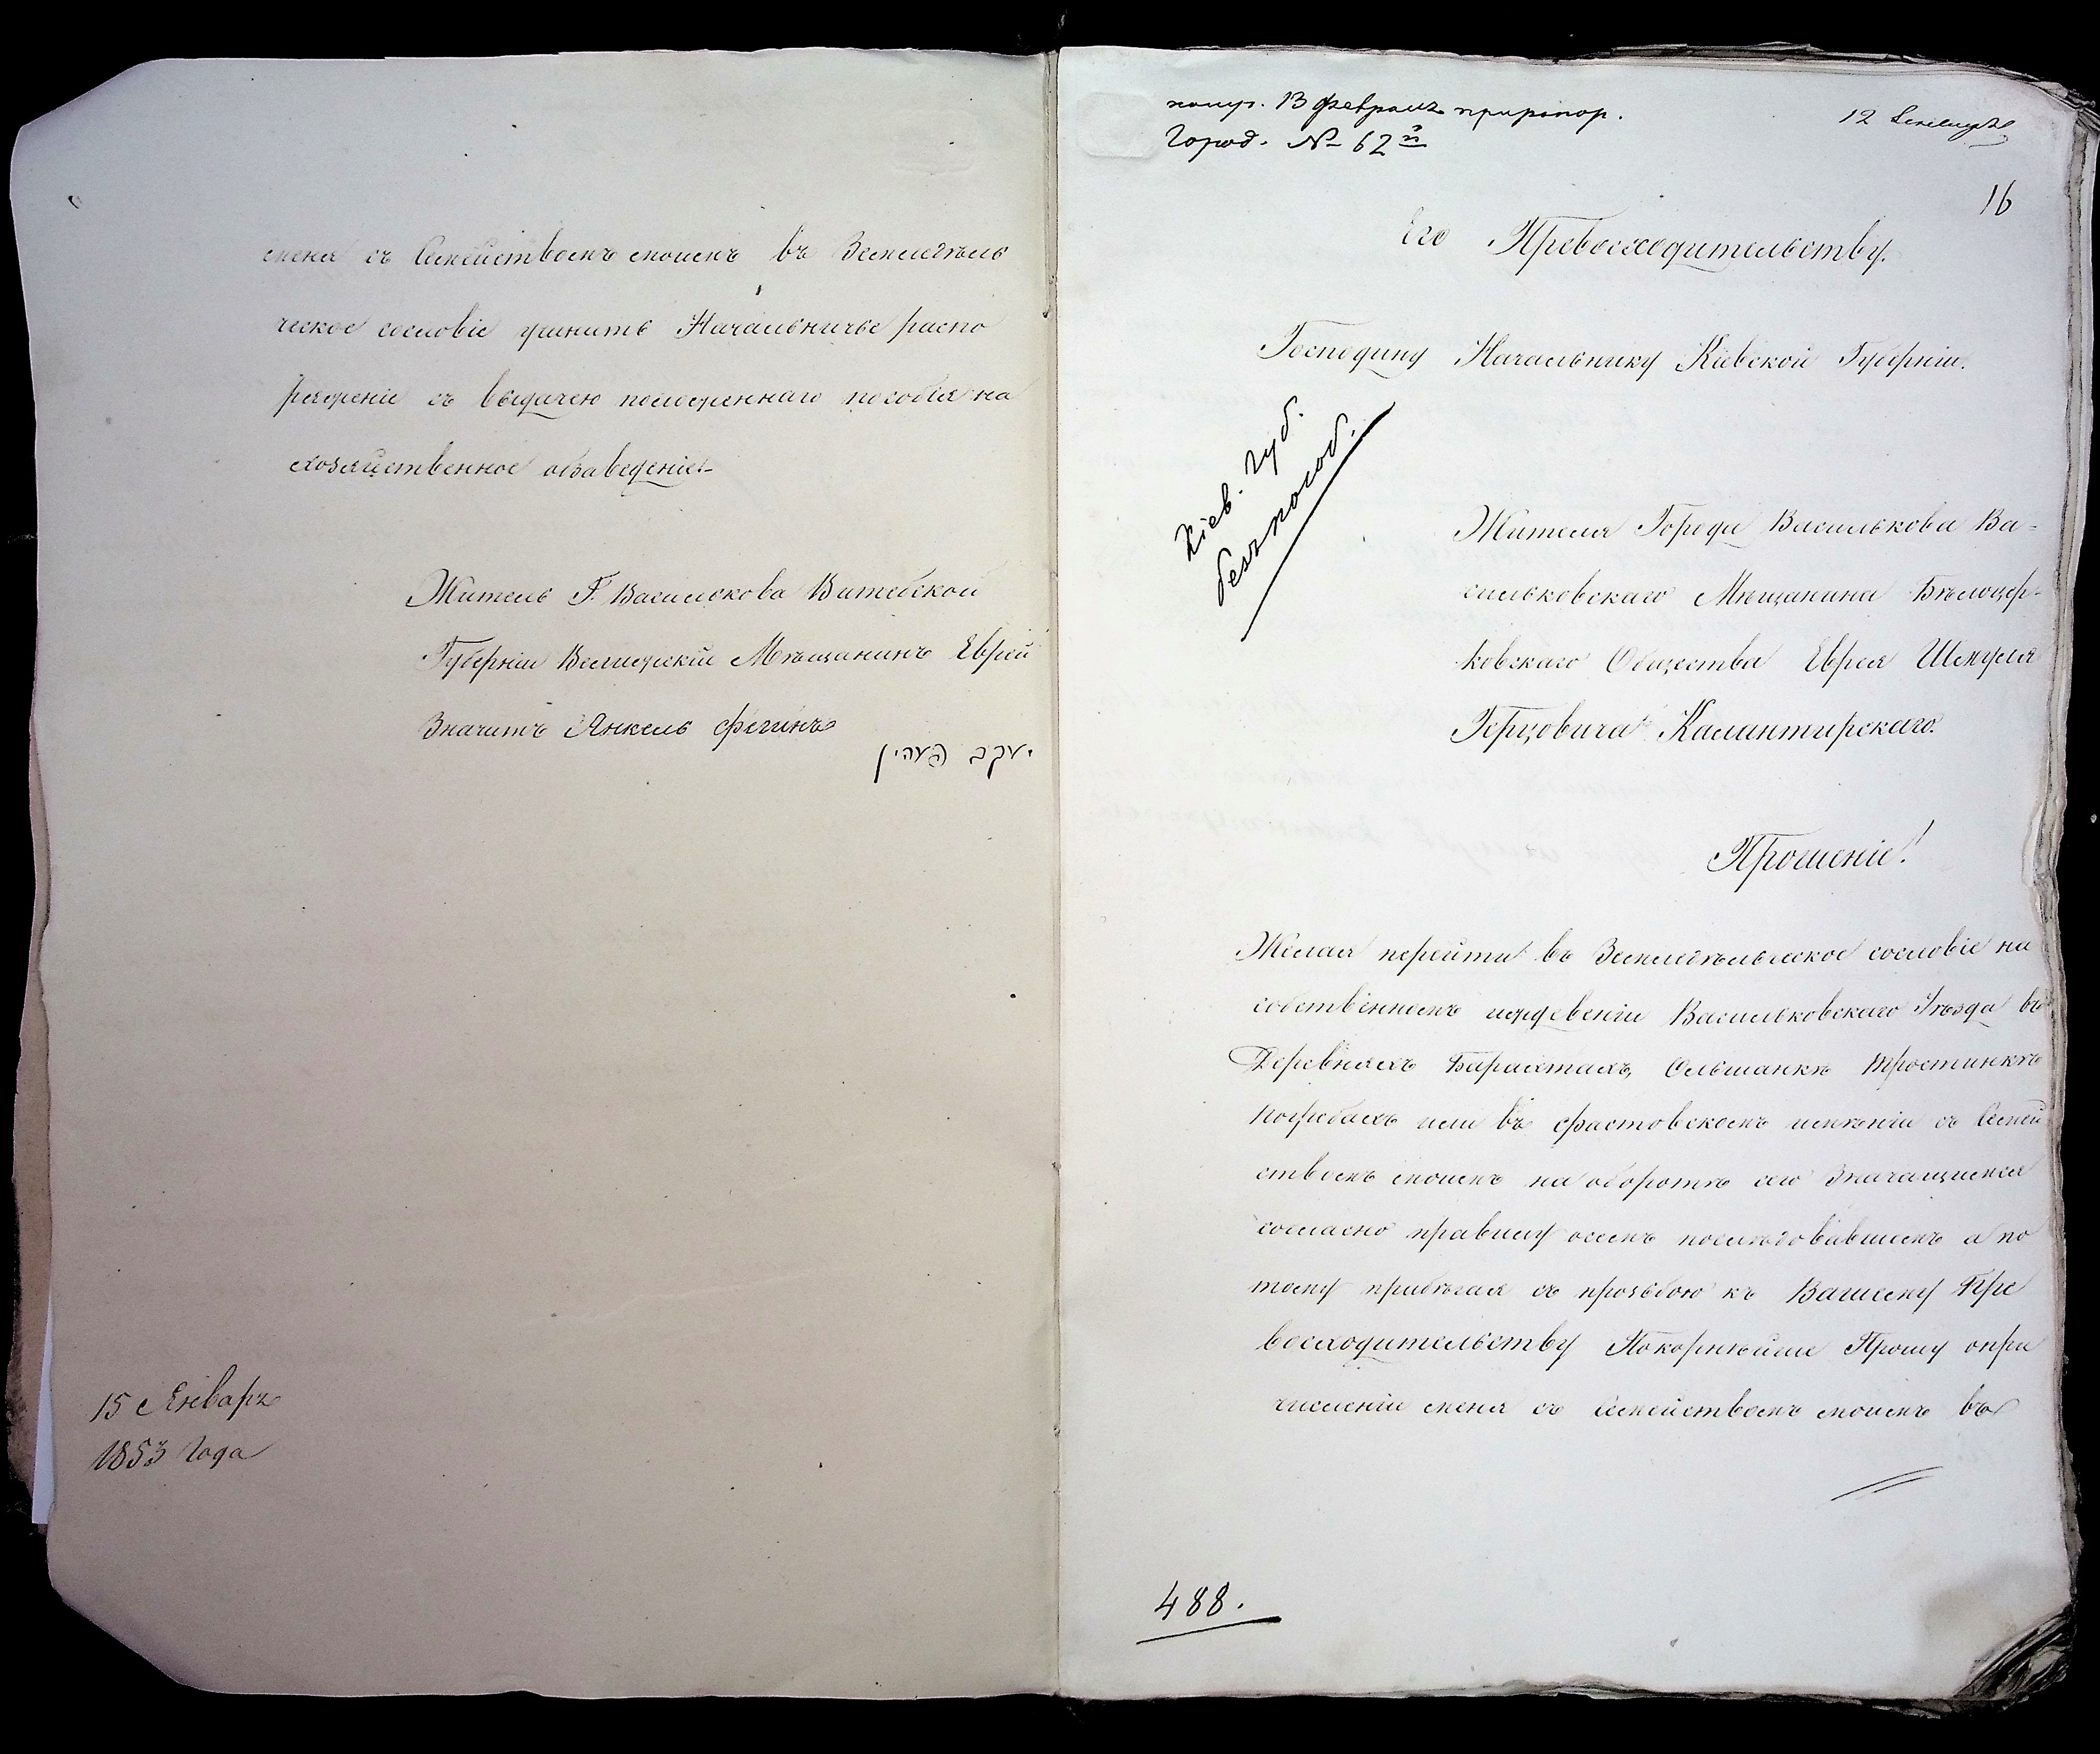 меня съ Семействомъ моимъ въ Земледѣль
ческое сословіе учинить Начальничье распо
ряженіе съ выдачею пособія на
хозяйственное обзаведеніе.
Житель Г. Василькова Витебской
Губерніи Велижскій Мѣщанинъ Еврей
Значитъ Янкель Фегинъ
יעקב פעגין
15 Января
1853 Года
13 февраля
Город. № 62
12
16
Его Превосходительству.
Господину Начальнику Кіевской Губерніи.
Кіев. губ.
безъ пособ.
Жителя Города Василькова Ва-
сильковскаго Мѣщанина Бѣлоцер-
ковскаго Общества Еврея Шмуля
Герцовича Калантирскаго.
Прошеніе!
Желая перейти въ Земледѣльческое сословіе на
собственномъ Васильковскаго Уѣзда въ
Деревняхъ Барахтахъ, Ольшанкѣ Тростинкѣ
Погребахъ или въ Фастовскомъ имѣніи съ Семей
ствомъ моимъ на оборотѣ сего Значащимся
согласно правилу осемъ последовавшемъ а по
тому прибѣгая съ прозьбою къ Вашему Пре
восходительству Покорнѣйше Прошу опри
численіи меня съ Семействомъ моимъ въ
488.